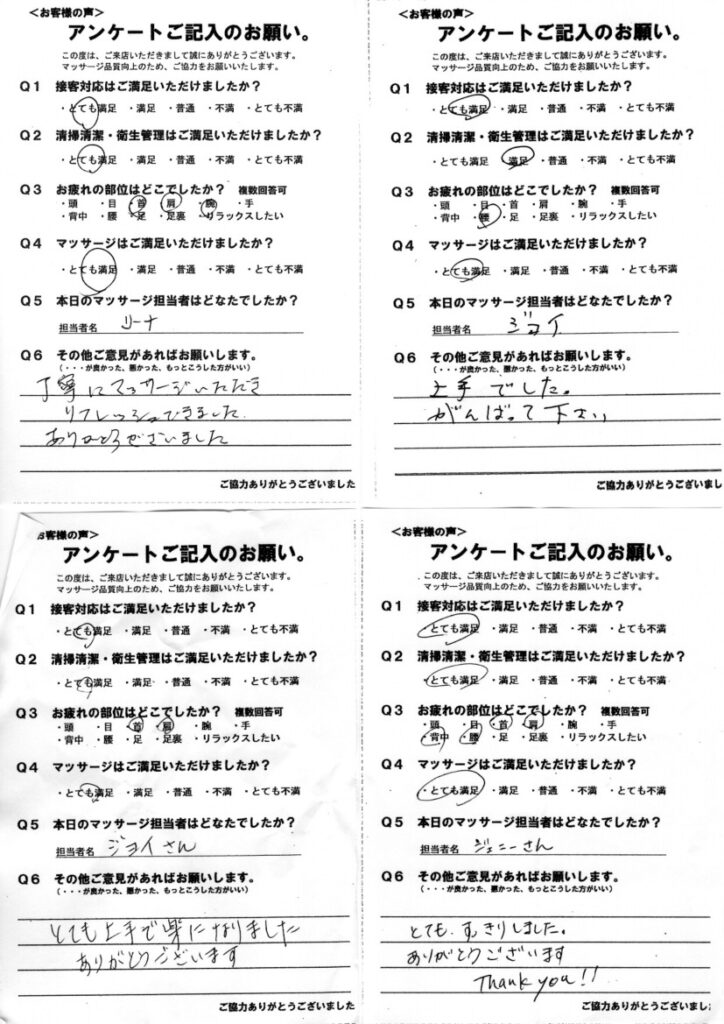 <お客様の声>
アンケートご記入のお願い。
この度は、ご来店いただきまして誠にありがとうございます。
マッサージ品質向上のため、ご協力をお願いいたします。
Q1 接客対応はご満足いただけましたか?
・とても満足 ・満足 ・普通 ・不満 ・とても不満
Q2 清掃清潔・衛生管理はご満足いただけましたか?
・とても満足 ・満足 ・普通 ・不満 ・とても不満
Q3 お疲れの部位はどこでしたか? 複数回答可
・頭 ・目 ・首 ・肩 ・腕 ・手
・背中 ・腰 ・足 ・足裏 ・リラックスしたい
Q4 マッサージはご満足いただけましたか?
・とても満足 ・満足 ・普通 ・不満 ・とても不満
Q5 本日のマッサージ担当者はどなたでしたか?
担当者名 リーナ
Q6 その他ご意見があればお願いします。
(・・・が良かった、悪かった、もっとこうした方がいい)
丁寧にマッサージいただき
リフレッシュできました
ありがとうございました
ご協力ありがとうございました
<お客様の声>
アンケートご記入のお願い。
この度は、ご来店いただきまして誠にありがとうございます。
マッサージ品質向上のため、ご協力をお願いいたします。
Q1 接客対応はご満足いただけましたか?
・とても満足 ・満足 ・普通 ・不満 ・とても不満
Q2 清掃清潔・衛生管理はご満足いただけましたか?
・とても満足 ・満足 ・普通 ・不満 ・とても不満
Q3 お疲れの部位はどこでしたか? 複数回答可
・頭 ・目 ・首 ・肩 ・腕 ・手
・背中 ・腰 ・足 ・足裏 ・リラックスしたい
Q4 マッサージはご満足いただけましたか?
・とても満足 ・満足 ・普通 ・不満 ・とても不満
Q5 本日のマッサージ担当者はどなたでしたか?
担当者名 ジョイ
Q6 その他ご意見があればお願いします。
(・・・が良かった、悪かった、もっとこうした方がいい)
上手でした。
がんばって下さい
ご協力ありがとうございまし
お客様の声>
アンケートご記入のお願い。
この度は、ご来店いただきまして誠にありがとうございます。
マッサージ品質向上のため、ご協力をお願いいたします。
Q1 接客対応はご満足いただけましたか?
・とても満足 ・満足 ・普通 ・不満 ・とても不満
Q2 清掃清潔・衛生管理はご満足いただけましたか?
・とても満足 ・満足 ・普通 ・不満 ・とても不満
Q3 お疲れの部位はどこでしたか? 複数回答可
・頭 ・目 ・首 ・肩 ・腕 ・手
・背中 ・腰 ・足 ・足裏 ・リラックスしたい
Q4 マッサージはご満足いただけましたか?
・とても満足 ・満足 ・普通 ・不満 ・とても不満
Q5 本日のマッサージ担当者はどなたでしたか?
担当者名 ジョイさん
Q6 その他ご意見があればお願いします。
(・・・が良かった、悪かった、もっとこうした方がいい)
とても上手で楽になりました
ありがとうございます
ご協力ありがとうございました
<お客様の声>
アンケートご記入のお願い。
この度は、ご来店いただきまして誠にありがとうございます。
マッサージ品質向上のため、ご協力をお願いいたします。
Q1 接客対応はご満足いただけましたか?
・とても満足 ・満足 ・普通 ・不満 ・とても不満
Q2 清掃清潔・衛生管理はご満足いただけましたか?
・とても満足 ・満足 ・普通 ・不満 ・とても不満
Q3 お疲れの部位はどこでしたか? 複数回答可
・頭 ・目 ・首 ・肩 ・腕 ・手
・背中 ・腰 ・足 ・足裏 ・リラックスしたい
Q4 マッサージはご満足いただけましたか?
・とても満足 ・満足 ・普通 ・不満 ・とても不満
Q5 本日のマッサージ担当者はどなたでしたか?
担当者名 ジェニーさん
Q6 その他ご意見があればお願いします。
(・・・が良かった、悪かった、もっとこうした方がいい)
とても、すっきりしました。
ありがとうございます
Thank you!!
ご協力ありがとうございまし